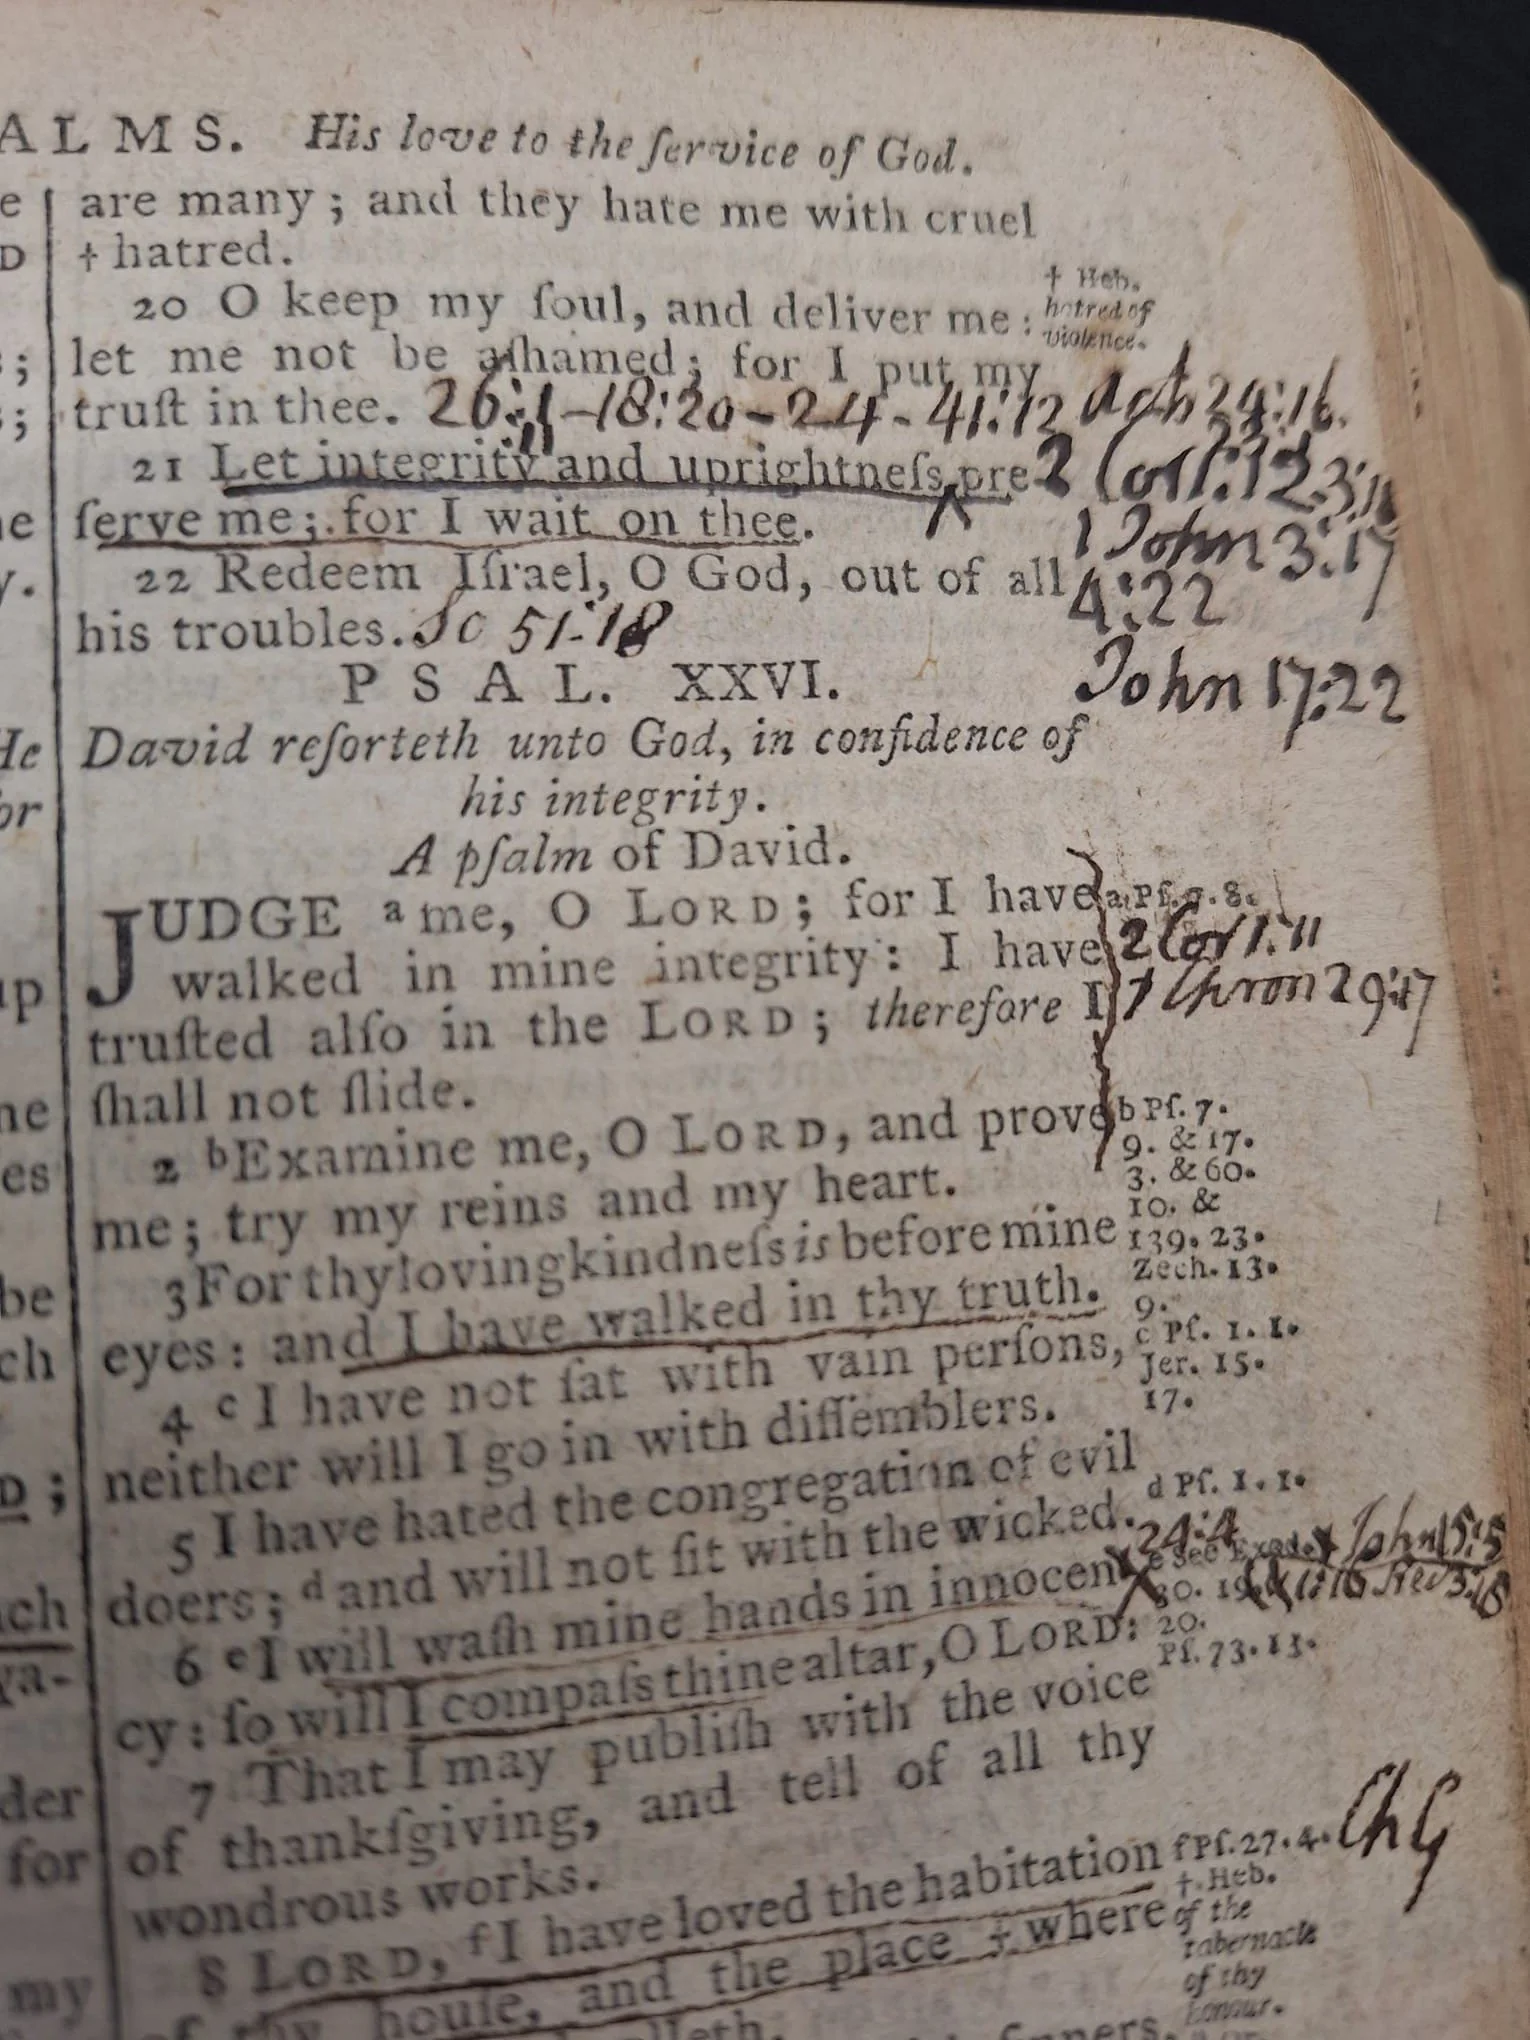 ALMS. His love to the ſervice of God.
e
are many ; and they hate me with cruel
D
† hatred.
† Heb.
hatred of
violence.
20 O keep my ſoul, and deliver me :
; let me not be aſhamed; for I put my
; truſt in thee. 26:1-18:20-24-41:12 Acts 24:16.
21 Let integrity and uprightneſs pre-
2 Cor 1:12
ne
ſerve me; for I wait on thee.
1 John 3:17
y.
22 Redeem Iſrael, O God, out of all
4:22
his troubles. So 51:18
John 17:22
PSAL. XXVI.
He
David reſorteth unto God, in confidence of
or
his integrity.
A pſalm of David.
JUDGE a me, O LORD; for I have
a Pſ. 7. 8.
up
walked in mine integrity : I have
2 Cor 1:11
truſted alſo in the LORD; therefore I
1 Chron 29:17
ne
ſhall not ſlide.
es
2 b Examine me, O LORD, and prove
b Pſ. 7.
9. & 17.
3. & 60.
10. &
139. 23.
Zech. 13.
9.
me; try my reins and my heart.
be
3 For thy lovingkindneſs is before mine
ch
eyes : and I have walked in thy truth.
4 c I have not ſat with vain perſons,
c Pſ. 1. 1.
Jer. 15.
17.
D ;
neither will I go in with diſſemblers.
5 I have hated the congregation of evil
ch
doers; d and will not ſit with the wicked.
d Pſ. 1. 1.
24:4
ya-
6 e I will waſh mine hands in innocen-
e See Exod.
30. 19,
20.
Pſ. 73. 13.
John 15:5
1:16 Rev 3:18
cy : ſo will I compaſs thine altar, O LORD:
der
7 That I may publiſh with the voice
for
of thankſgiving, and tell of all thy
wondrous works.
my
8 LORD, f I have loved the habitation
f Pſ. 27. 4.
Ch G
† Heb.
of the
tabernacle
of thy
honour.
of thy houſe, and the place † where